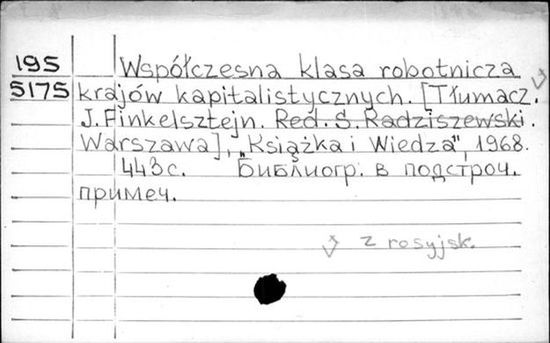 195 Współczesna klasa robotnicza
5175 krajów kapitalistycznych. [Tłumacz.
J. Finkelsztejn. Red. S. Radziszewski.
Warszawa], „Książka i Wiedza", 1968.
443 с. Библиогр. в подстроч.
примеч.
z rosyjsk.